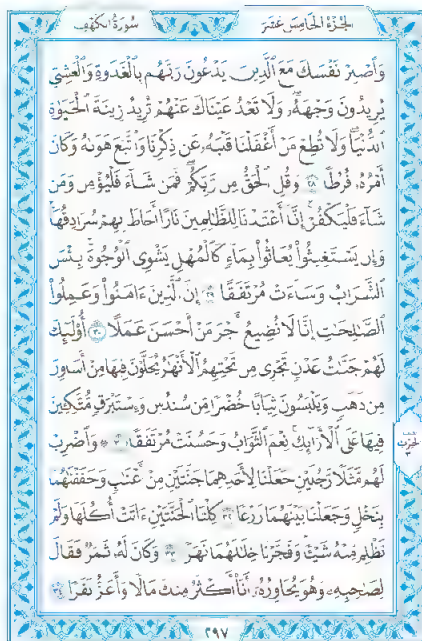 الجزء الخامس عشر
سورة الكهف
وَٱصْبِرْ نَفْسَكَ مَعَ ٱلَّذِينَ يَدْعُونَ رَبَّهُم بِٱلْغَدَوٰةِ وَٱلْعَشِىِّ
يُرِيدُونَ وَجْهَهُۥ وَلَا تَعْدُ عَيْنَاكَ عَنْهُمْ تُرِيدُ زِينَةَ ٱلْحَيَوٰةِ
ٱلدُّنْيَا وَلَا تُطِعْ مَنْ أَغْفَلْنَا قَلْبَهُۥ عَن ذِكْرِنَا وَٱتَّبَعَ هَوَىٰهُ وَكَانَ
أَمْرُهُۥ فُرُطًا ٢٨ وَقُلِ ٱلْحَقُّ مِن رَّبِّكُمْ فَمَن شَآءَ فَلْيُؤْمِن وَمَن
شَآءَ فَلْيَكْفُرْ إِنَّآ أَعْتَدْنَا لِلظَّٰلِمِينَ نَارًا أَحَاطَ بِهِمْ سُرَادِقُهَا
وَإِن يَسْتَغِيثُوا۟ يُغَاثُوا۟ بِمَآءٍ كَٱلْمُهْلِ يَشْوِى ٱلْوُجُوهَ بِئْسَ
ٱلشَّرَابُ وَسَآءَتْ مُرْتَفَقًا ٢٩ إِنَّ ٱلَّذِينَ ءَامَنُوا۟ وَعَمِلُوا۟
ٱلصَّٰلِحَٰتِ إِنَّا لَا نُضِيعُ أَجْرَ مَنْ أَحْسَنَ عَمَلًا ٣٠ أُو۟لَٰٓئِكَ
لَهُمْ جَنَّٰتُ عَدْنٍ تَجْرِى مِن تَحْتِهِمُ ٱلْأَنْهَٰرُ يُحَلَّوْنَ فِيهَا مِنْ أَسَاوِرَ
مِن ذَهَبٍ وَيَلْبَسُونَ ثِيَابًا خُضْرًا مِّن سُندُسٍ وَإِسْتَبْرَقٍ مُّتَّكِـِٔينَ
فِيهَا عَلَى ٱلْأَرَآئِكِ نِعْمَ ٱلثَّوَابُ وَحَسُنَتْ مُرْتَفَقًا ٣١ وَٱضْرِبْ
لَهُم مَّثَلًا رَّجُلَيْنِ جَعَلْنَا لِأَحَدِهِمَا جَنَّتَيْنِ مِنْ أَعْنَٰبٍ وَحَفَفْنَٰهُمَا
بِنَخْلٍ وَجَعَلْنَا بَيْنَهُمَا زَرْعًا ٣٢ كِلْتَا ٱلْجَنَّتَيْنِ ءَاتَتْ أُكُلَهَا وَلَمْ
تَظْلِم مِّنْهُ شَيْـًٔا وَفَجَّرْنَا خِلَٰلَهُمَا نَهَرًا ٣٣ وَكَانَ لَهُۥ ثَمَرٌ فَقَالَ
لِصَٰحِبِهِۦ وَهُوَ يُحَاوِرُهُۥٓ أَنَا۠ أَكْثَرُ مِنكَ مَالًا وَأَعَزُّ نَفَرًا ٣٤
٢٩٧